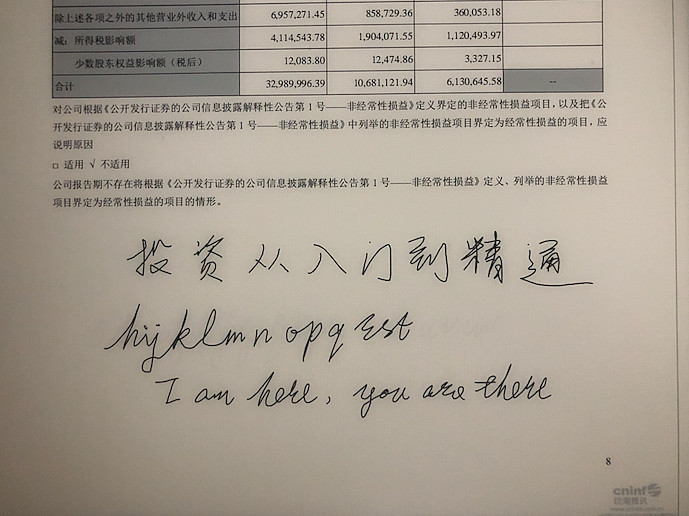 除上述各项之外的其他营业外收入和支出 6,957,271.45 858,729.36 360,053.18
减：所得税影响额 4,114,543.78 1,904,071.55 1,120,493.97
少数股东权益影响额（税后） 12,083.80 12,474.86 3,327.15
合计 32,989,996.39 10,681,121.94 6,130,645.58 --
对公司根据《公开发行证券的公司信息披露解释性公告第 1 号——非经常性损益》定义界定的非经常性损益项目，以及把《公
开发行证券的公司信息披露解释性公告第 1 号——非经常性损益》中列举的非经常性损益项目界定为经常性损益的项目，应
说明原因
□ 适用 √ 不适用
公司报告期不存在将根据《公开发行证券的公司信息披露解释性公告第 1 号——非经常性损益》定义、列举的非经常性损益
项目界定为经常性损益的项目的情形。
投资从入门到精通
hijklmnopqrst
I am here, you are there
8
cninf
巨潮资讯